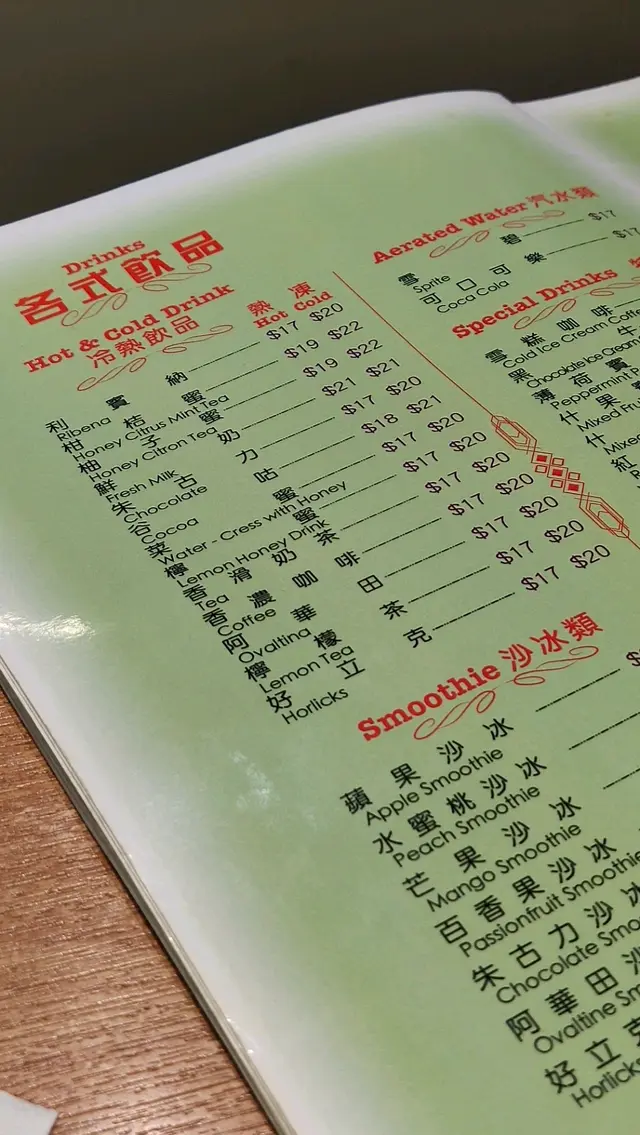 Drinks
各式飲品
Hot & Cold Drink
冷熱飲品
熱 凍
Hot Cold
利賓納 $17 $20
Ribena
柑桔蜜 $19 $22
Honey Citrus Mint Tea
柚子蜜 $19 $22
Honey Citron Tea
鮮奶 $21 $21
Fresh Milk
朱古力 $17 $20
Chocolate
谷咕 $18 $21
Cocoa
菜蜜 $17 $20
Water - Cress with Honey
檸蜜 $17 $20
Lemon Honey Drink
香滑奶茶 $17 $20
Tea
香濃咖啡 $17 $20
Coffee
阿華田 $17 $20
Ovaltina
檸檬茶 $17 $20
Lemon Tea
好立克 $17 $20
Horlicks
Aerated Water 汽水類
雪碧 $17
Sprite
可口可樂 $17
Coca Cola
Special Drinks
雪糕咖啡
Cold Ice Cream
黑牛
Chocolate Ice Cream
薄荷賓
Peppermint
什果
Mixed
什
Mixed
紅
Smoothie 沙冰類
蘋果沙冰
Apple Smoothie
水蜜桃沙冰
Peach Smoothie
芒果沙冰
Mango Smoothie
百香果沙冰
Passionfruit Smoothie
朱古力沙冰
Chocolate
阿華田沙
Ovaltine
好立克
Horlicks